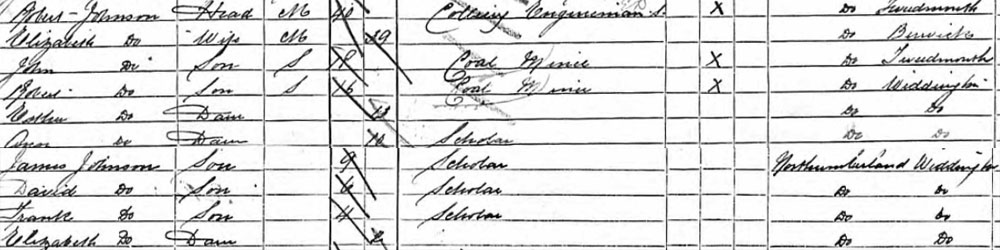 Robert Johnson Head M 40 Colliery Engineman X Do Tweedmouth
Elizabeth Do Wife M 39 Do Berwick
John Do Son S 18 Coal Miner X Do Tweedmouth
Robert Do Son S 16 Coal Miner X Do Widdrington
Esther Do Daur Do Do
Do Daur Scholar Do Do
James Johnson Son 9 Scholar Northumberland Widdrington
David Do Son 6 Scholar Do Do
Frank Do Son 4 Scholar Do Do
Elizabeth Do Daur 2 Do Do